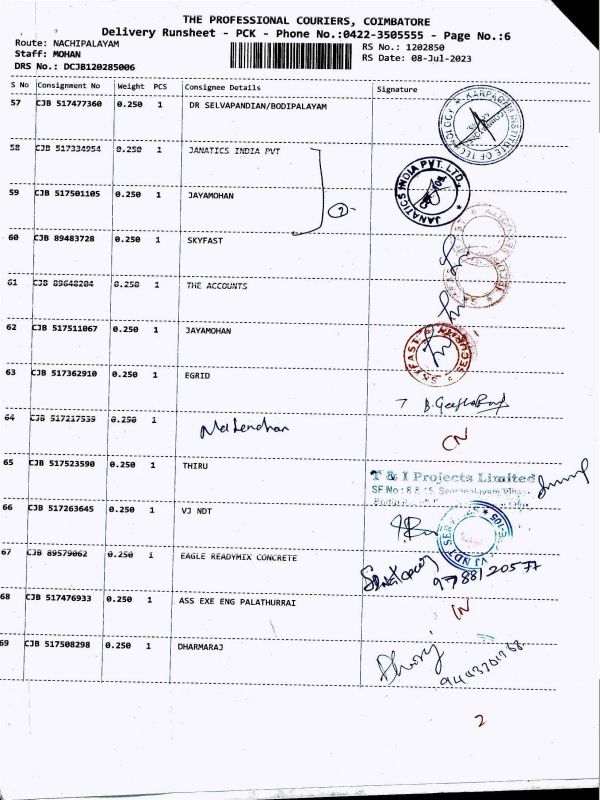 THE PROFESSIONAL COURIERS, COIMBATORE
Delivery Runsheet - PCK - Phone No.:0422-3505555 - Page No.:6
Route: NACHIPALAYAM
RS No.: 1202850
Staff: MOHAN
RS Date: 08-Jul-2023
DRS No.: DCJB120285006
S No Consignment No Weight PCS Consignee Details Signature
57 CJB 517477360 0.250 1 DR SELVAPANDIAN/BODIPALAYAM
KARPAGAM INSTITUTE OF TECHNOLOGY
58 CJB 517334954 0.250 1 JANATICS INDIA PVT
JANATICS INDIA PVT. LTD.
59 CJB 517501105 0.250 1 JAYAMOHAN
2
60 CJB 89483728 0.250 1 SKYFAST
61 CJB 89648204 0.250 1 THE ACCOUNTS
62 CJB 517511067 0.250 1 JAYAMOHAN
SKYFAST
63 CJB 517362910 0.250 1 EGRID
64 CJB 517217539 0.250 1
CN
65 CJB 517523590 0.250 1 THIRU
T & I Projects Limited
SF No :
66 CJB 517263645 0.250 1 VJ NDT
VJ NDT
67 CJB 89579062 0.250 1 EAGLE READYMIX CONCRETE
9788120577
68 CJB 517476933 0.250 1 ASS EXE ENG PALATHURRAI
IN
69 CJB 517508298 0.250 1 DHARMARAJ
Dharj
2